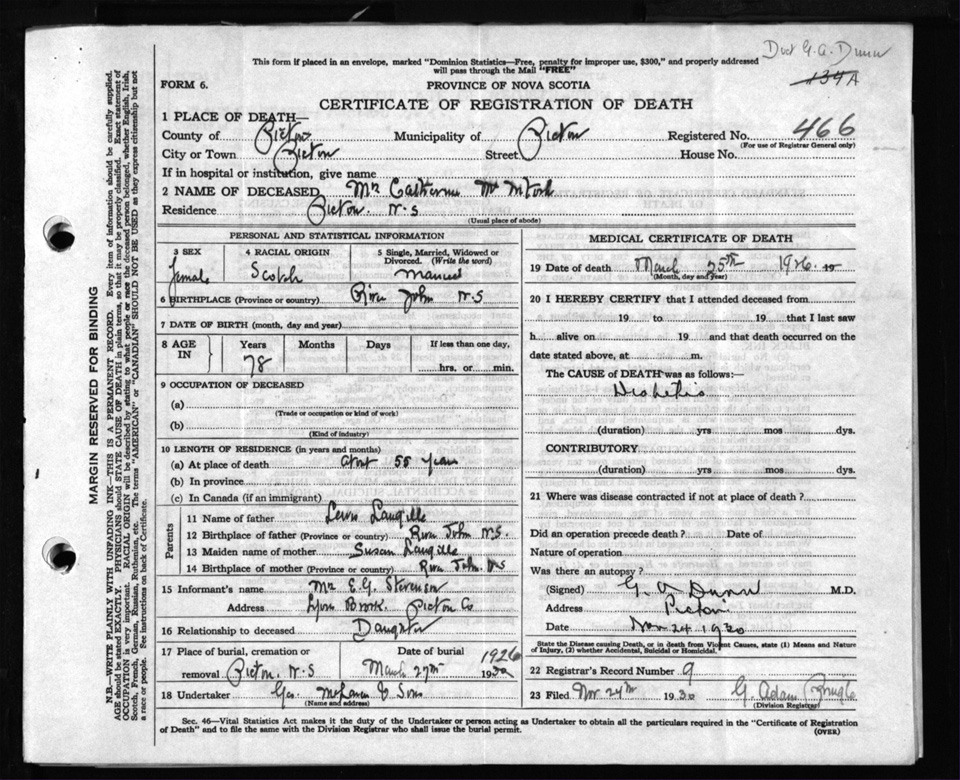 Doct G. A. Dunn
134A
This form if placed in an envelope, marked "Dominion Statistics—Free, penalty for improper use, $300," and properly addressed
will pass through the Mail "FREE"
FORM 6.
PROVINCE OF NOVA SCOTIA
CERTIFICATE OF REGISTRATION OF DEATH
1 PLACE OF DEATH—
County of Pictou Municipality of Pictou Registered No. 466
(For use of Registrar General only)
City or Town Pictou Street House No.
If in hospital or institution, give name
2 NAME OF DECEASED Mrs Catherine
Residence Pictou. N.S
(Usual place of abode)
PERSONAL AND STATISTICAL INFORMATION
3 SEX 4 RACIAL ORIGIN 5 Single, Married, Widowed or
Divorced. (Write the word)
female Scotch Married
6 BIRTHPLACE (Province or country) River John N.S
7 DATE OF BIRTH (month, day and year)
8 AGE IN Years Months Days If less than one day,
78 hrs. or min.
9 OCCUPATION OF DECEASED
(a)
(Trade or occupation or kind of work)
(b)
(Kind of industry)
10 LENGTH OF RESIDENCE (in years and months)
(a) At place of death about 55 years
(b) In province
(c) In Canada (if an immigrant)
Parents
11 Name of father Lewis Langille
12 Birthplace of father (Province or country) River John N.S.
13 Maiden name of mother Susan Langille
14 Birthplace of mother (Province or country) River John. N.S
15 Informant's name Mrs E. G. Stevenson
Address Lyons Brook. Pictou Co
16 Relationship to deceased Daughter
17 Place of burial, cremation or Date of burial 1926
removal Pictou N.S March 27th 193
18 Undertaker Geo. & Sons
(Name and address)
MEDICAL CERTIFICATE OF DEATH
19 Date of death March 25th 1926 19
(Month, day and year)
20 I HEREBY CERTIFY that I attended deceased from
19 to 19 that I last saw
h alive on 19 and that death occurred on the
date stated above, at m.
The CAUSE of DEATH was as follows:—
Diabetis
(duration) yrs mos dys.
CONTRIBUTORY
(duration) yrs mos dys.
21 Where was disease contracted if not at place of death?
Did an operation precede death? Date of
Nature of operation
Was there an autopsy?
(Signed) G. A Dunn M.D.
Address Pictou
Date Nov 24 1930
State the Disease causing Death, or in death from Violent Causes, state (1) Means and Nature
of Injury, (2) whether Accidental, Suicidal or Homicidal.
22 Registrar's Record Number 9
23 Filed Nov 24th 1930 G. Adam
(Division Registrar)
Sec. 46—Vital Statistics Act makes it the duty of the Undertaker or person acting as Undertaker to obtain all the particulars required in the "Certificate of Registration
of Death" and to file the same with the Division Registrar who shall issue the burial permit.
(OVER)
MARGIN RESERVED FOR BINDING
N.B.—WRITE PLAINLY WITH UNFADING INK—THIS IS A PERMANENT RECORD. Every item of information should be carefully supplied.
AGE should be stated EXACTLY. PHYSICIANS should STATE CAUSE OF DEATH in plain terms, so that it may be properly classified. Exact statement of
OCCUPATION is very important. RACIAL ORIGIN will be described by stating to what people or race the deceased person belonged, whether English, Irish,
Scotch, French, German, Russian, Ruthenian, etc. The terms "AMERICAN" or "CANADIAN" SHOULD NOT BE USED as they express citizenship but not
a race or people. See instructions on back of Certificate.